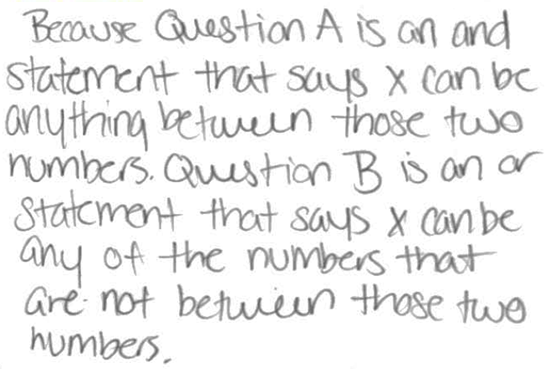 Because Question A is an and
statement that says x can be
anything between those two
numbers. Question B is an or
statement that says x can be
any of the numbers that
are not between those two
numbers.